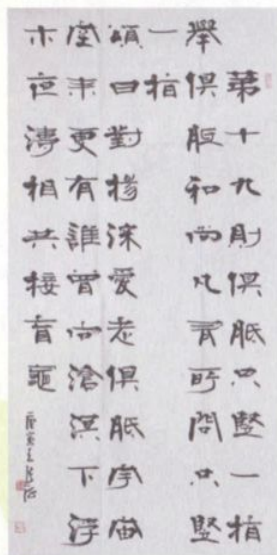 第十九則俱胝只豎一指
舉俱胝和尚凡有所問只豎
一指
頌曰對揚深愛老俱胝宇宙
空來更有誰曾向滄溟下浮
木夜濤相共接盲龜